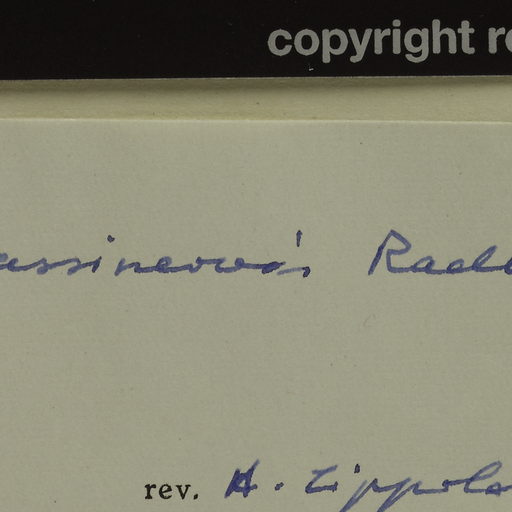 copyright re
assinervis Radl
rev. H. Lippold